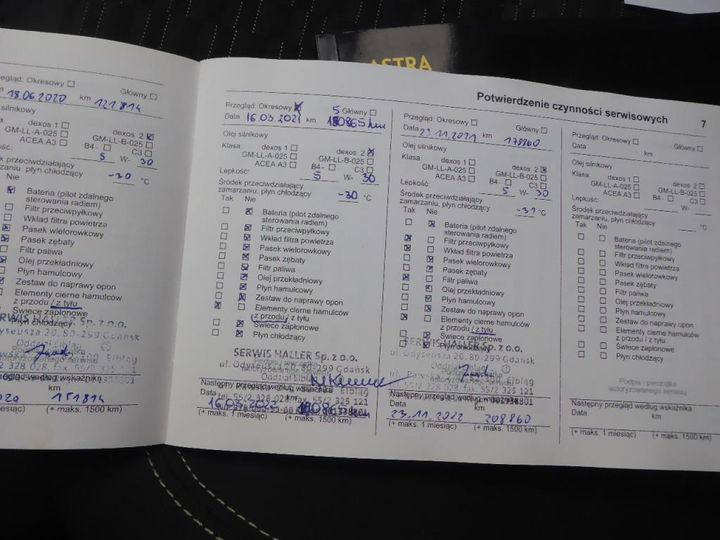 ASTRA
Potwierdzenie czynności serwisowych 7
Przegląd: Okresowy Główny
18.06.2020 km 121 814
silnikowy
dexos 1 dexos 2
GM-LL-A-025 GM-LL-B-025
ACEA A3 B4- C3
5 W- 30
-30 °C
Nie
Bateria (pilot zdalnego
sterowania radiem)
Filtr przeciwpyłkowy
Wkład filtra powietrza
Pasek wielorowkowy
Pasek zębaty
Filtr paliwa
Olej przekładniowy
Płyn hamulcowy
Zestaw do naprawy opon
Elementy cierne hamulców
z przodu / z tyłu
Świece zapłonowe
Płyn chłodzący
SERWIS HALLER Sp. z o.o.
według wskaźnika
km
151 814
(+ maks. 1500 km)
Przegląd: Okresowy Główny
Data 16.03.2021 km
Olej silnikowy
Klasa: dexos 1 dexos 2
GM-LL-A-025 GM-LL-B-025
ACEA A3 B4- C3
Lepkość: 5 W- 30
Środek przeciwdziałający
zamarzaniu, płyn chłodzący -30 °C
Tak Nie
Bateria (pilot zdalnego
sterowania radiem)
Filtr przeciwpyłkowy
Wkład filtra powietrza
Pasek wielorowkowy
Pasek zębaty
Filtr paliwa
Olej przekładniowy
Płyn hamulcowy
Zestaw do naprawy opon
Elementy cierne hamulców
z przodu / z tyłu
Świece zapłonowe
Płyn chłodzący
SERWIS HALLER Sp. z o.o.
ul. Odyseusza 20, 80-299 Gdańsk
Oddział Elbląg
Następny przegląd według wskaźnika
Data km
16.03.2022
(+ maks. 1 miesiąc) (+ maks. 1500 km)
Przegląd: Okresowy Główny
Data 11.2021 km 178860
Olej silnikowy
Klasa dexos 1 dexos 2
GM-LL-A-025 GM-LL-B-025
ACEA A3 B4- C3
Lepkość: 5 W- 30
Środek przeciwdziałający
zamarzaniu, płyn chłodzący -31 °C
Tak Nie
Bateria (pilot zdalnego
sterowania radiem)
Filtr przeciwpyłkowy
Wkład filtra powietrza
Pasek wielorowkowy
Pasek zębaty
Filtr paliwa
Olej przekładniowy
Płyn hamulcowy
Zestaw do naprawy opon
Elementy cierne hamulców
z przodu / z tyłu
Świece zapłonowe
Płyn chłodzący
SERWIS HALLER Sp. z o.o.
ul. Odyseusza 20, 80-299 Gdańsk
Następny przegląd według wskaźnika
Data km
23.11.2022 208 860
(+ maks. 1 miesiąc) (+ maks. 1500 km)
Przegląd: Okresowy Główny
Data km
Olej silnikowy
Klasa: dexos 1 dexos 2
GM-LL-A-025 GM-LL-B-025
ACEA A3 B4- C3
Lepkość: W-
Środek przeciwdziałający
zamarzaniu, płyn chłodzący °C
Tak Nie
Bateria (pilot zdalnego
sterowania radiem)
Filtr przeciwpyłkowy
Wkład filtra powietrza
Pasek wielorowkowy
Pasek zębaty
Filtr paliwa
Olej przekładniowy
Płyn hamulcowy
Zestaw do naprawy opon
Elementy cierne hamulców
z przodu / z tyłu
Świece zapłonowe
Płyn chłodzący
Podpis i pieczątka
autoryzowanego serwisu
Następny przegląd według wskaźnika
Data km
(+ maks. 1 miesiąc) (+ maks. 1500 km)